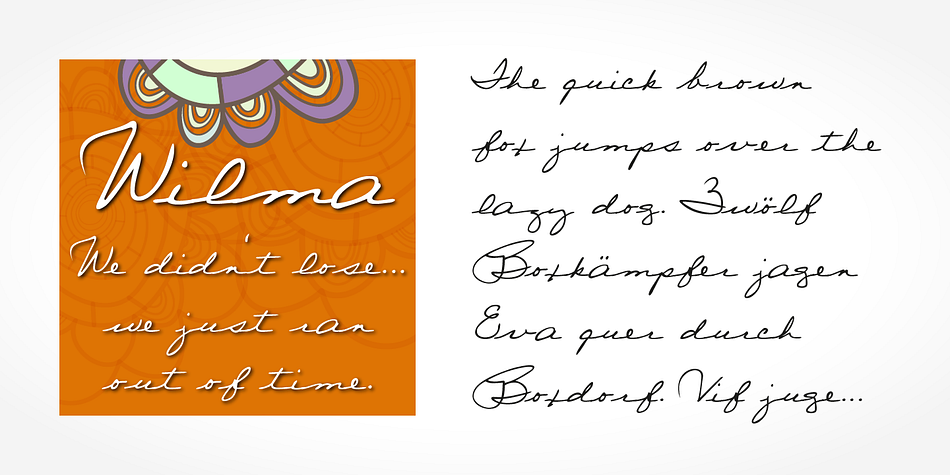 Wilma
We didn't lose...
we just ran
out of time.
The quick brown
fox jumps over the
lazy dog. Zwölf
Boxkämpfer jagen
Eva quer durch
Boxdorf. Vif juge...